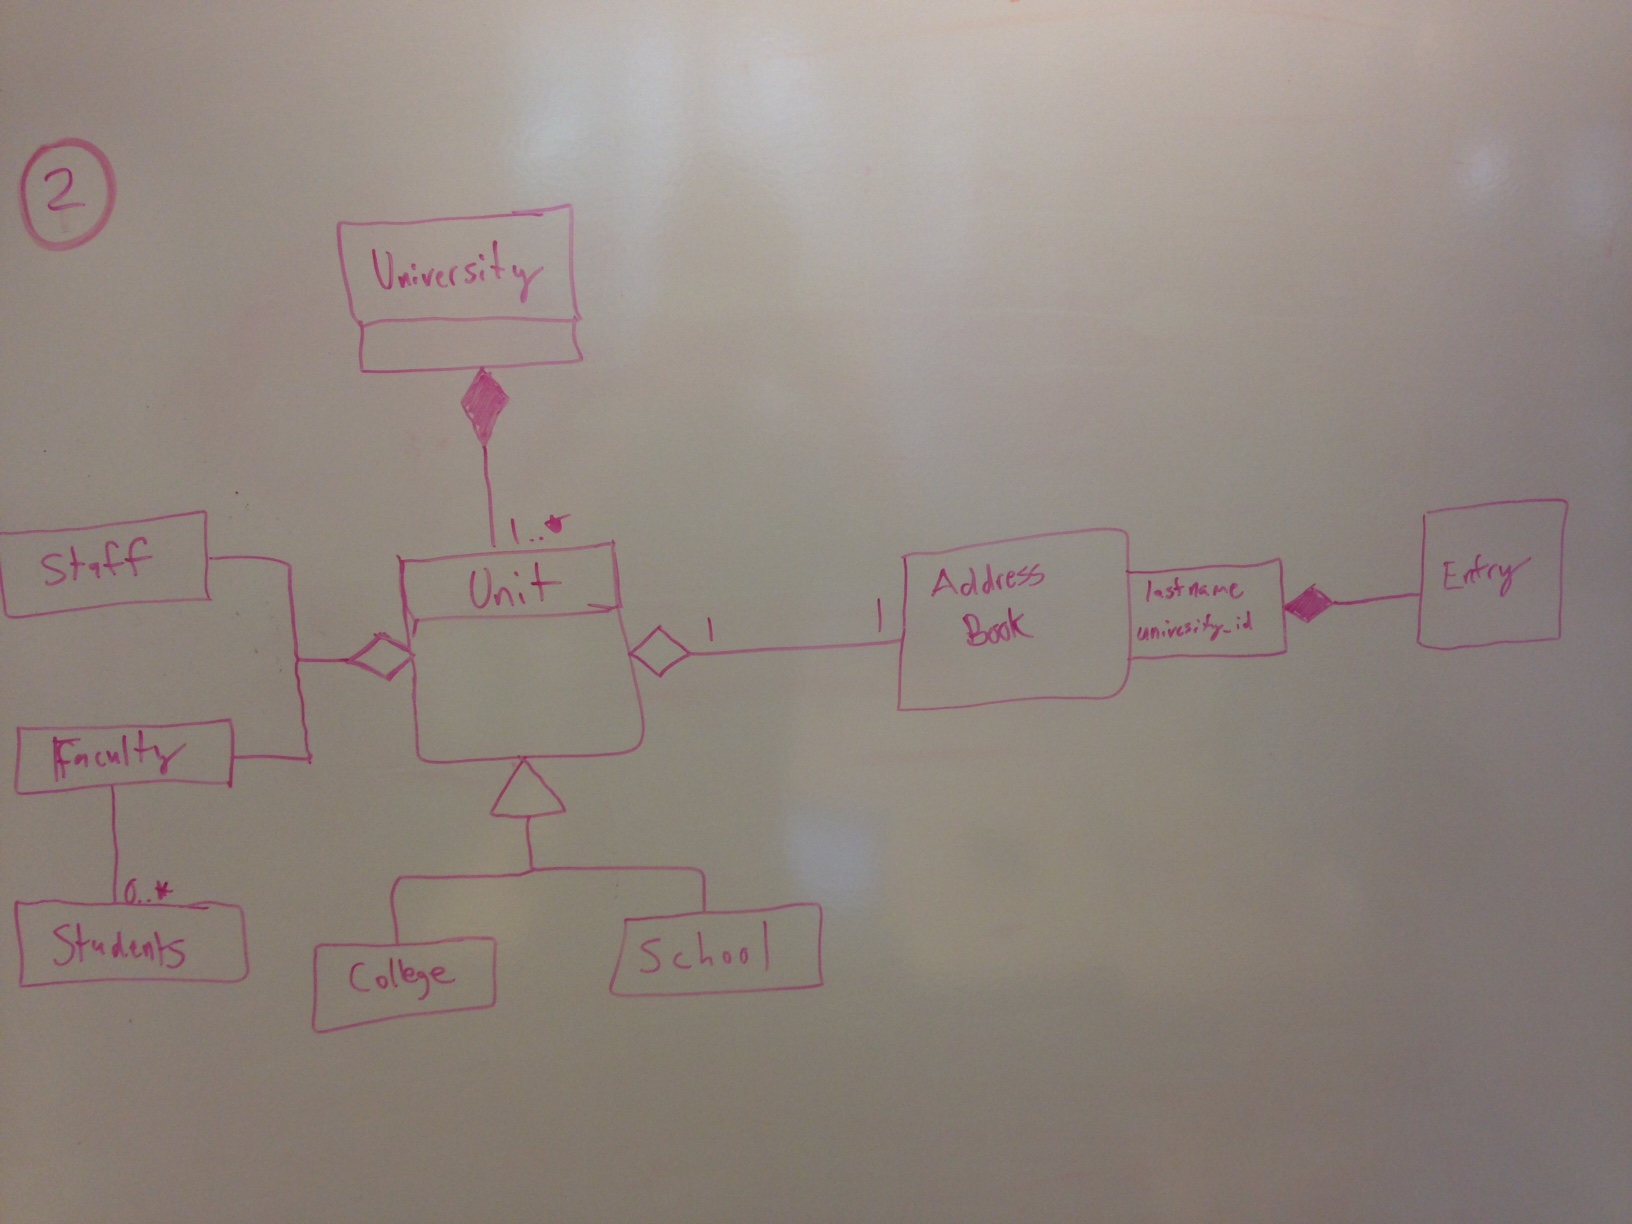 2
University
1..*
Staff
Unit
1
1
Address
Book
lastname
univesity_id
Entry
Faculty
0..*
Students
College
School